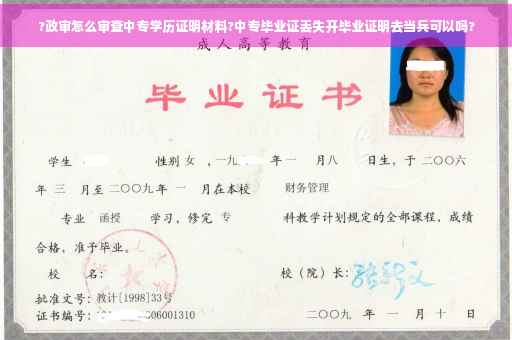 ?政审怎么审查中专学历证明材料?中专毕业证丢失开毕业证明去当兵可以吗?
成人高等教育
毕业证书
学生 性别 女 ,一九 年一 月八 日生,于二〇〇六
年 三 月至二〇〇九年 一 月在本校 财务管理
专业 函授 学习,修完 专 科教学计划规定的全部课程,成绩
合格,准予毕业。
校 名: 校(院)长:
批准文号:教计[1998]33号
证书编号: 06001310 二〇〇九 年 一 月 十 日